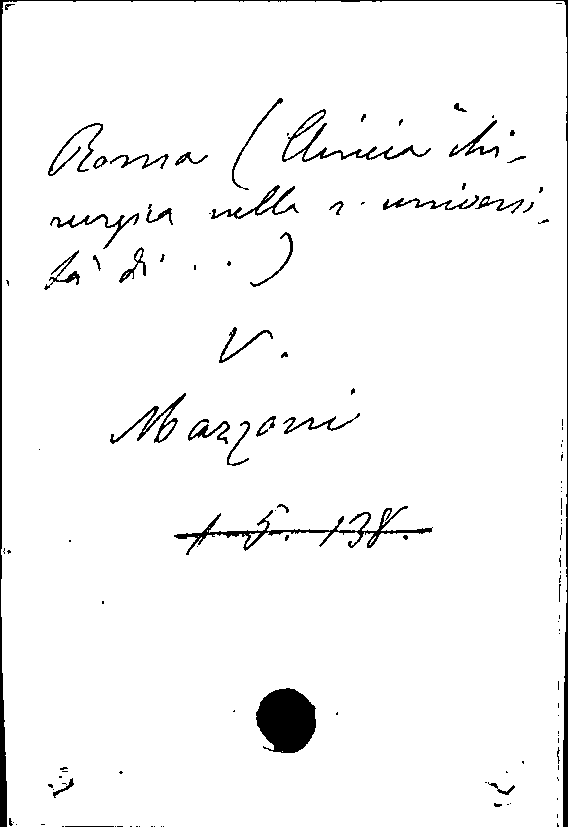 Roma (Clinica chi-
rurgica nella r. universi-
tà di . . .)
V.
Mazzoni
1. 5. 138.